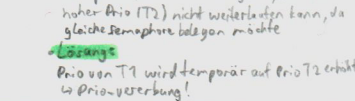 hoher Prio (T2) nicht weiterlaufen kann, da
gleiche Semaphore belegen möchte
• Lösung:
Prio von T1 wird temporär auf Prio T2 erhöht
↳ Prio-vererbung!